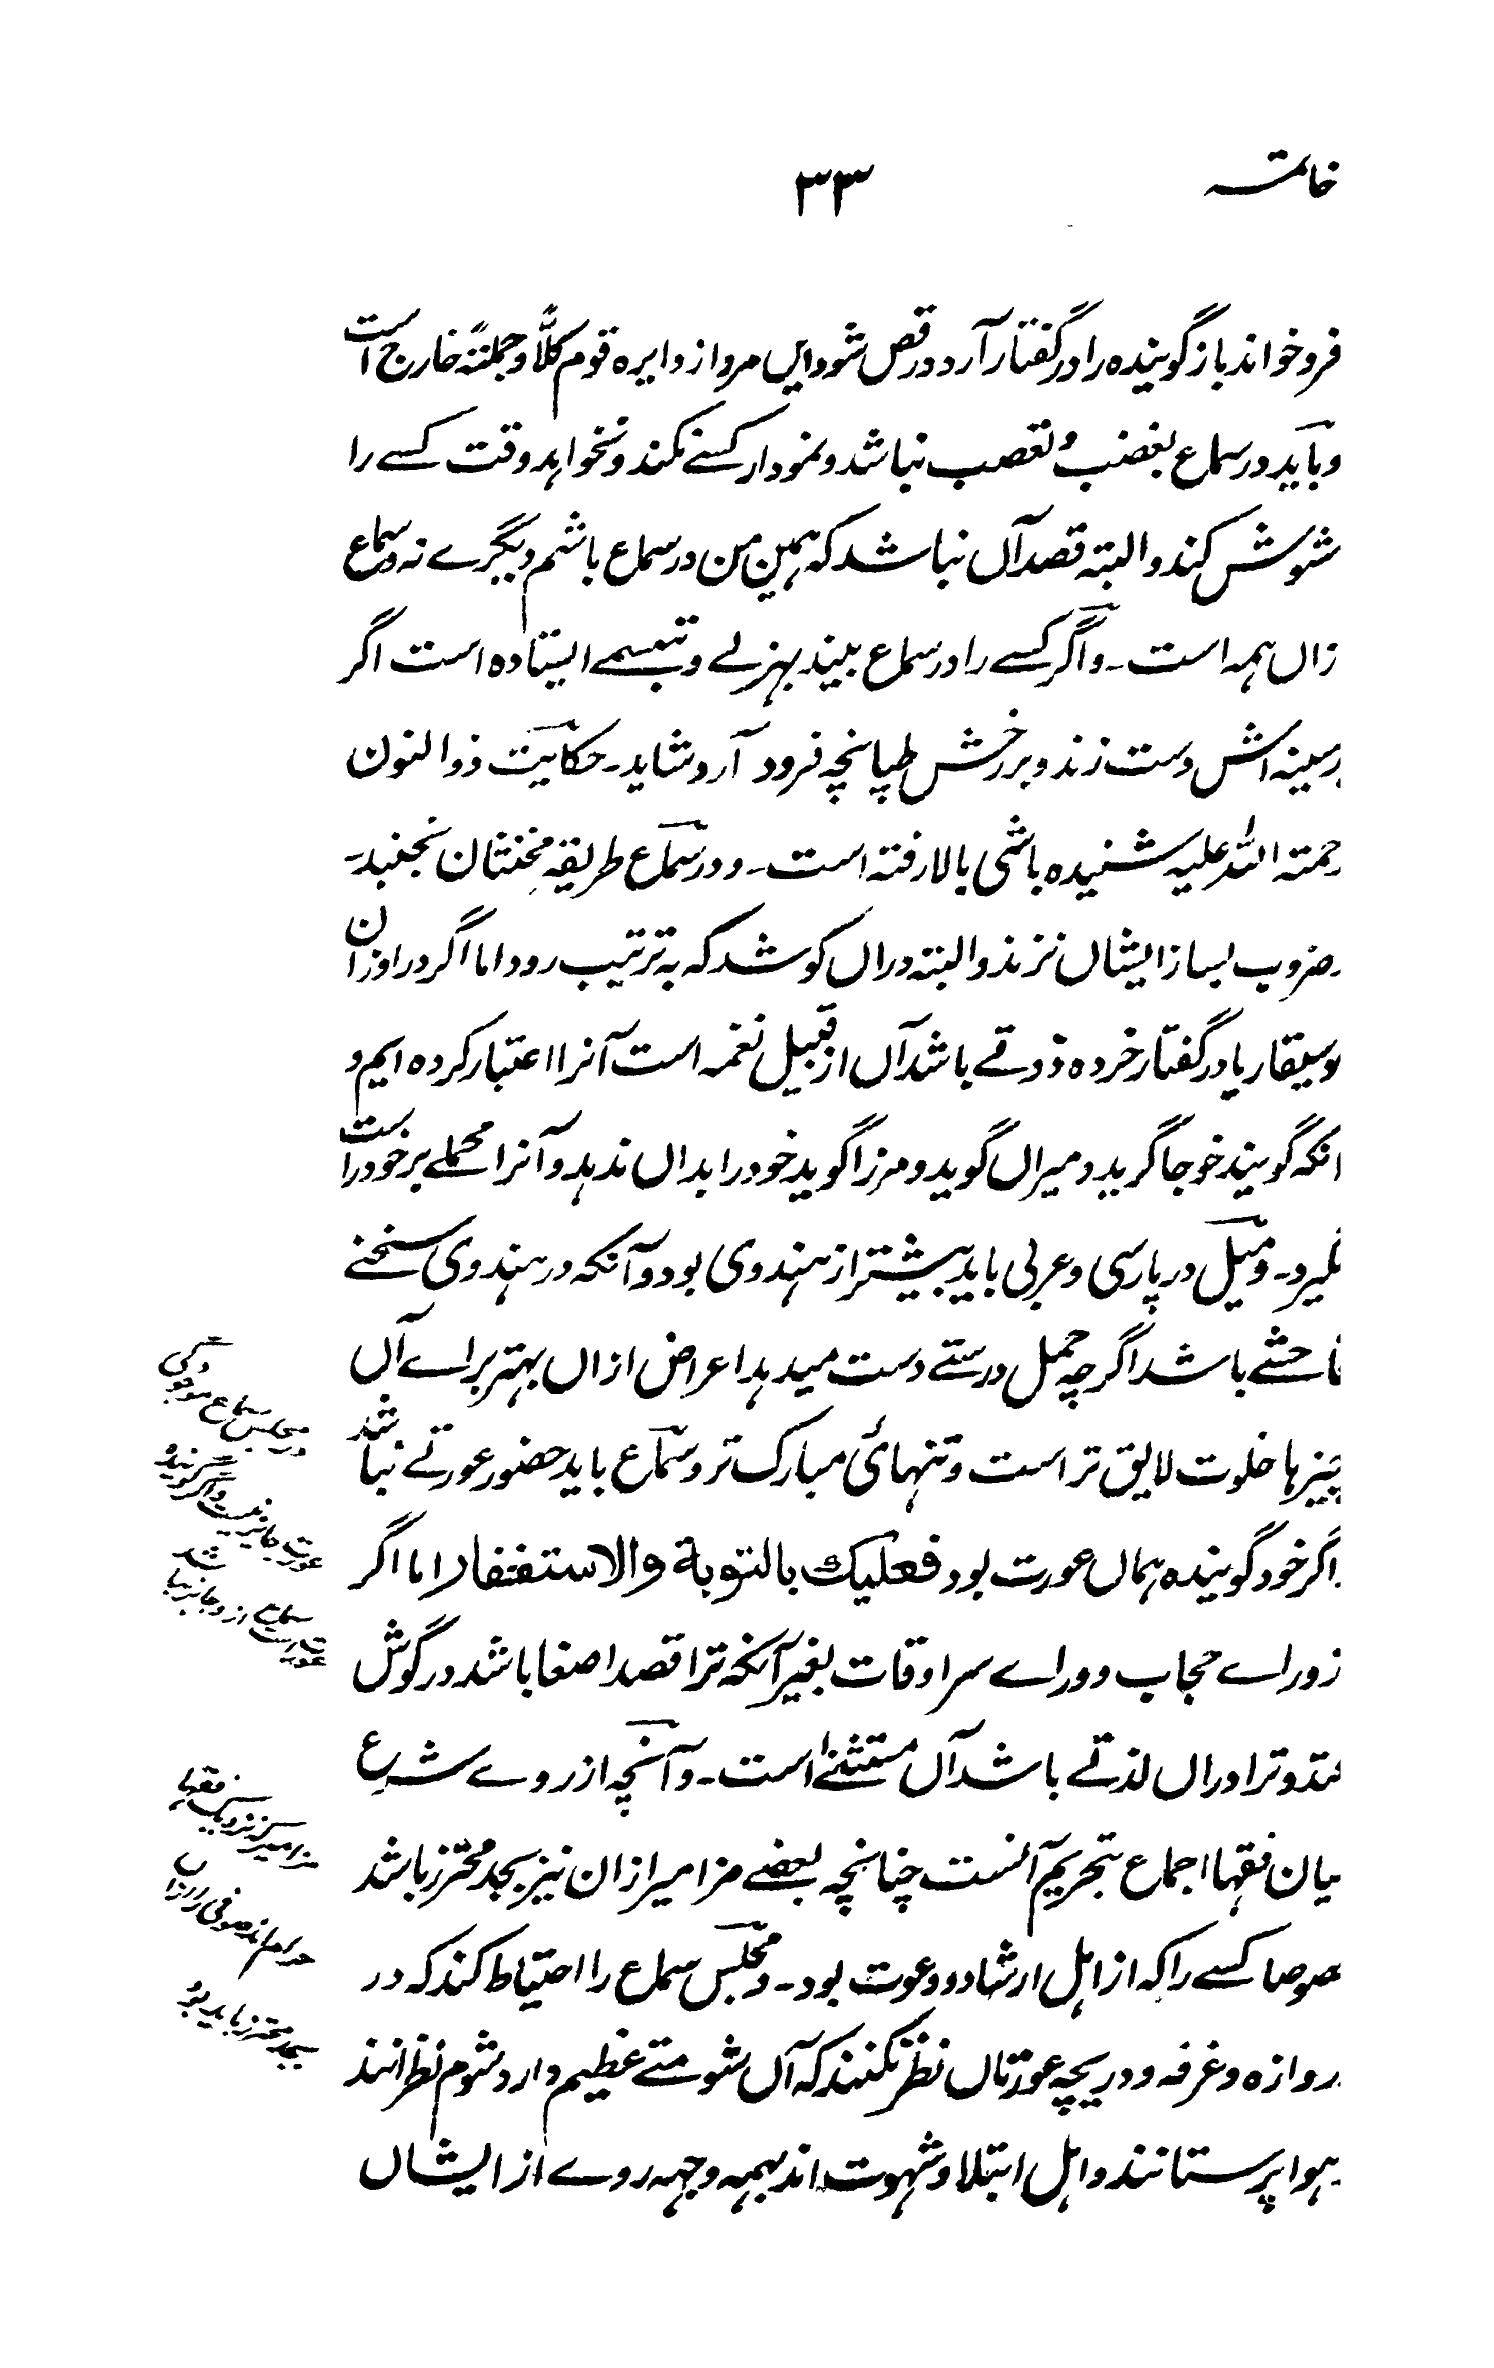 خاتمه
۳۳
فرو خواند باز گوینده را در گفتار آرد در رقص شود این مرد از دایره قوم کلاً و جملتهً خارج است
و باید در سماع بغضب و تعصب نباشد و نمودار کسے نکند و نخواهد وقت کسے را
شوش کند و البته قصد آں نباشد که همین من در سماع باشم دیگرے نه و سماع
زاں همه است ۔ و اگر کسے را در سماع بیند بهزلے و تبسمے ایستاده است اگر
سینه اش دست زند و بر رخش طپانچه فرود آرد شاید ۔ حکایت ذوالنون
رحمته الله علیه شنیده باشی بالا رفته است ۔ و در سماع طریقهٔ مخنثان نجنبد ۔
ضروب بساز ایشاں نزند و البته دراں کوشد که به ترتیب رود اما اگر در اوزان
وسیقار یا در گفتار خرده ذوقے باشد آں از قبیل نغمه است آنرا اعتبار کرده ایم و
انکه گویند خوجا گرید و میراں گوید و مرزا گوید خود را بداں ندهد و آنرا محملے بر خود راست
نگیرد ۔ و میل در پارسی و عربی باید بیشتر از هندوی بود و آنکه در هندوی سخنے
فاحشے باشد اگرچه حمل درستے دست میدهد اعراض ازاں بهتر براے آں
چیزها خلوت لایق تر است و تنهائی مبارک تر و سماع باید حضور عورتے نباشد
اگر خود گوینده هماں عورت بود فعلیک بالتوبة والاستغفار اما اگر
زوراے حجاب و وراے سراوقات بغیر آنکه ترا قصد اصغا باشد در گوش
فتد و ترا دراں لذتے باشد آں مستثنےٰ است ۔ و آنچه از روے شرع
میان فقها اجماع بتحریم آنست چنانچه بعضے مزامیر ازان نیز بجد محترز باشد
خصوصا کسے را که از اهل ارشاد و دعوت بود ۔ و مجلس سماع را احتیاط کند که در
دروازه و غرفه و دریچه عورتاں نظر نکنند که آں شومتے عظیم دارد شوم نظرانند
هوا پرستانند و اهل ابتلا و شهوت اند بهمه وجهه روے از ایشاں
در مجلس سماع موجودگی
عورت جائز نیست و اگر گوینده
عورت سماع ازو جائز نباشد
مزامیر که نزدیک فقها
حرام اند صوفی را ازاں
بجد محترز باید بود